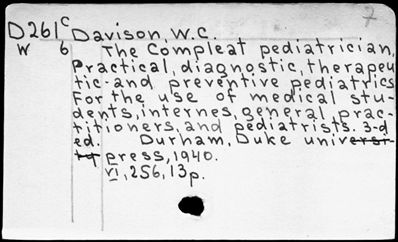 7
D261c Davison, W.C.
W 6 The Compleat pediatrician,
Practical, diagnostic, therapeu
tic and preventive pediatrics
For the use of medical stu-
dents, internes, general prac-
titioners, and pediatrists. 3-d
ed. Durham, Duke univerer-
ty press, 1940.
VI, 256, 13 p.